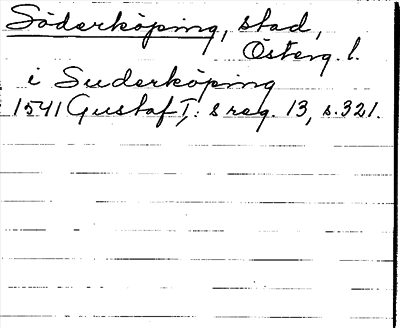 Söderköping, stad,
Österg. l.
i Suderköping
1541 Gustaf I:s reg. 13, s. 321.